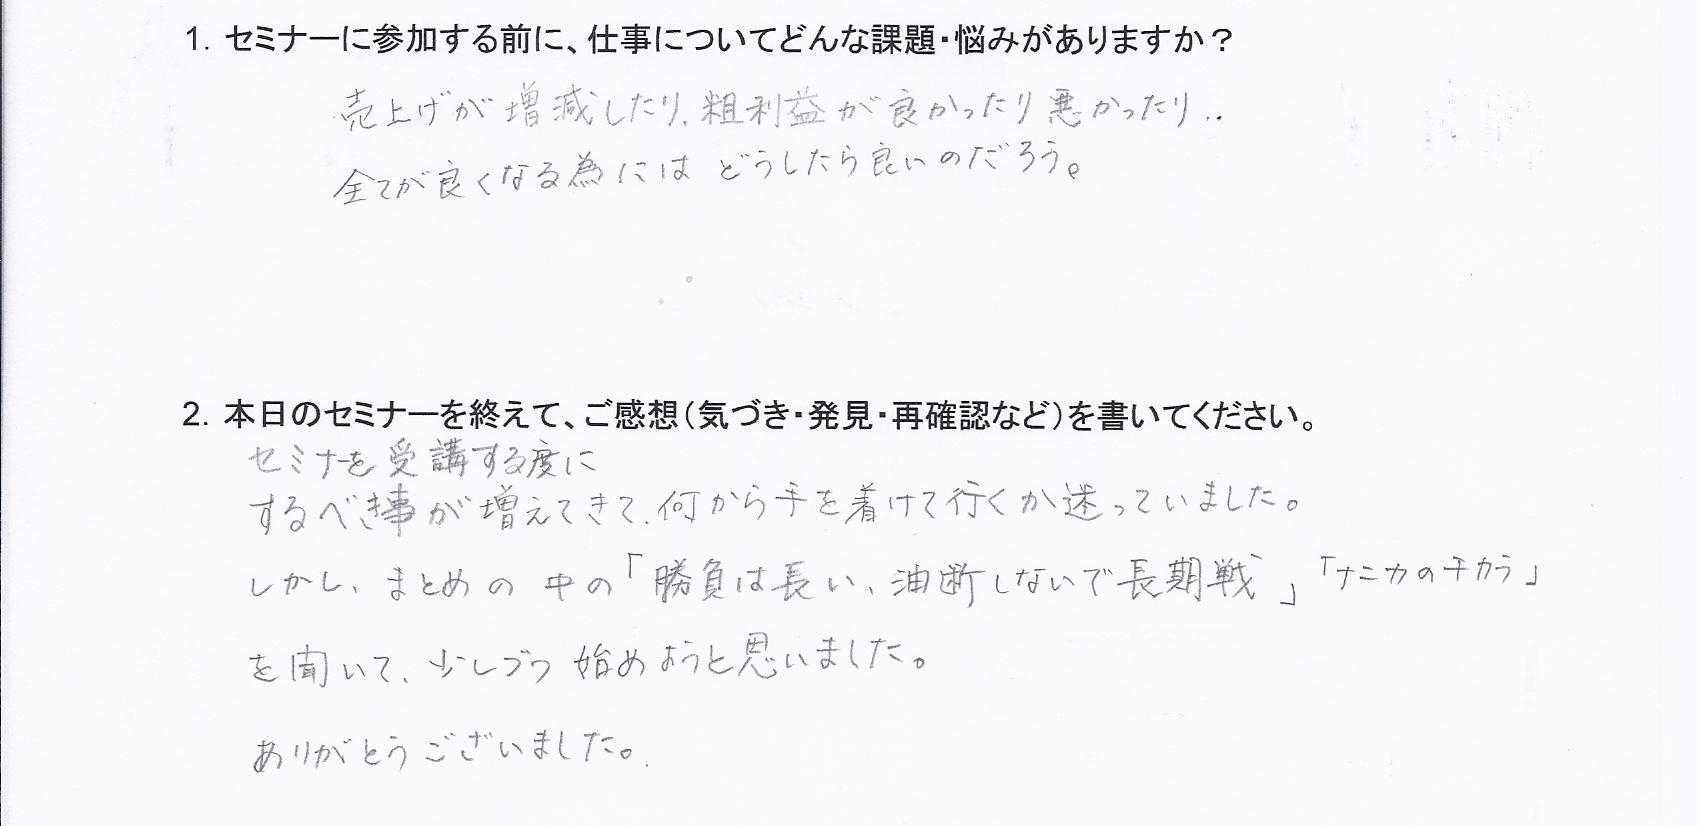 1. セミナーに参加する前に、仕事についてどんな課題・悩みがありますか？
売上げが増減したり、粗利益が良かったり悪かったり..
全てが良くなる為には どうしたら良いのだろう。
2. 本日のセミナーを終えて、ご感想（気づき・発見・再確認など）を書いてください。
セミナーを受講する度に
するべき事が増えてきて、何から手を着けて行くか迷っていました。
しかし、まとめの中の「勝負は長い、油断しないで長期戦」「ナニカのチカラ」
を聞いて、少しづつ始めようと思いました。
ありがとうございました。